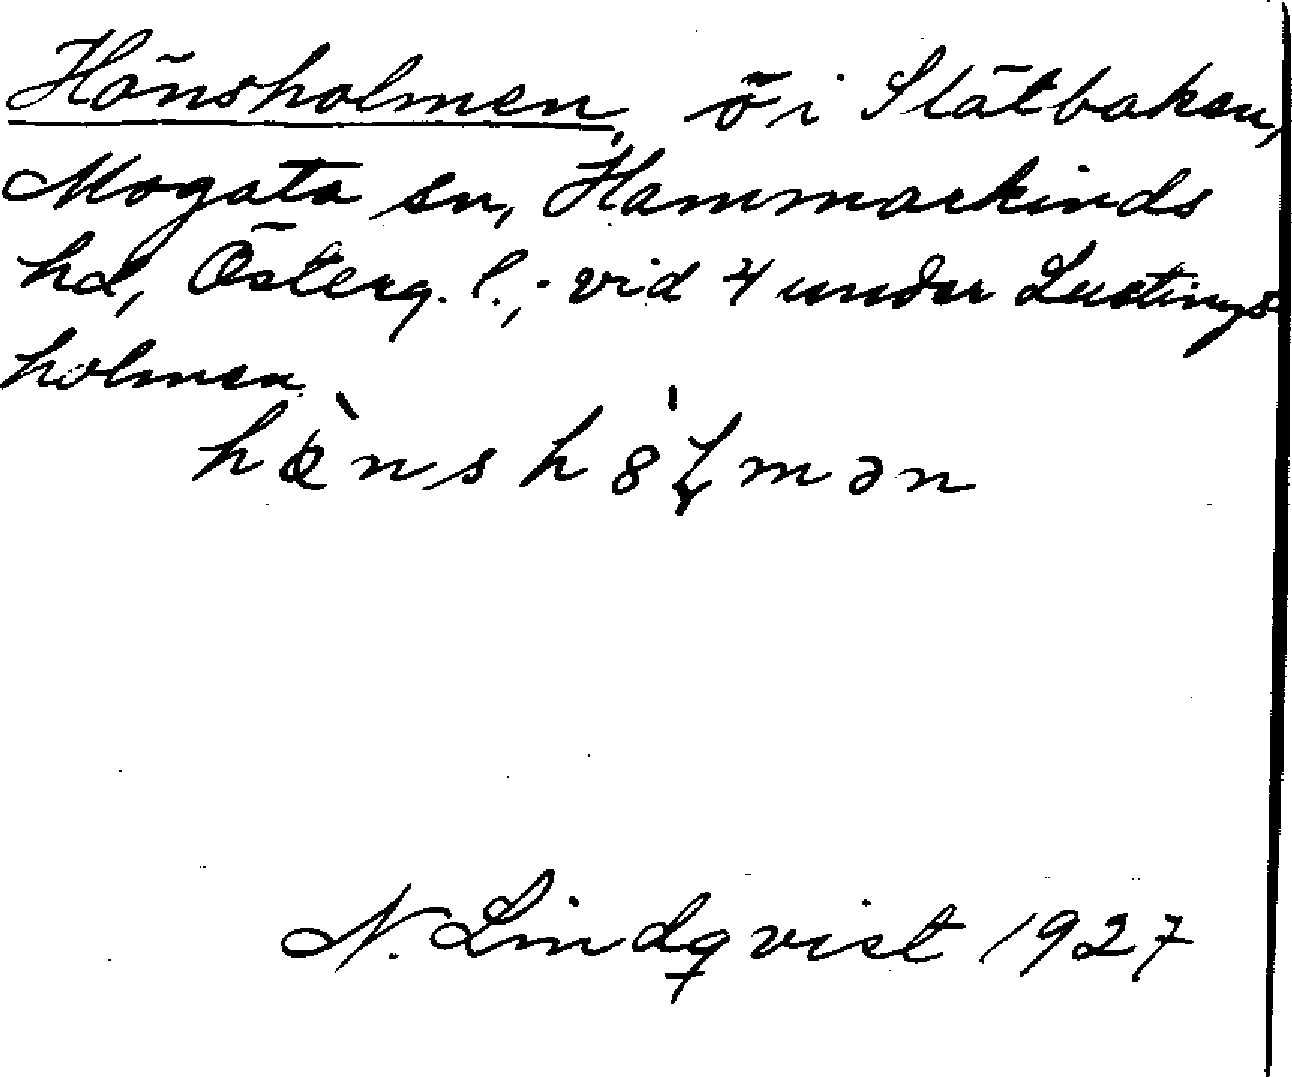 Hönsholmen, ö i Slätbaken,
Mogata sn, Hammarkinds
hd, Österg. l.; vid 4 under Lustings-
holmen.
hœ̀nshȯ́lmən
N. Lindqvist 1927